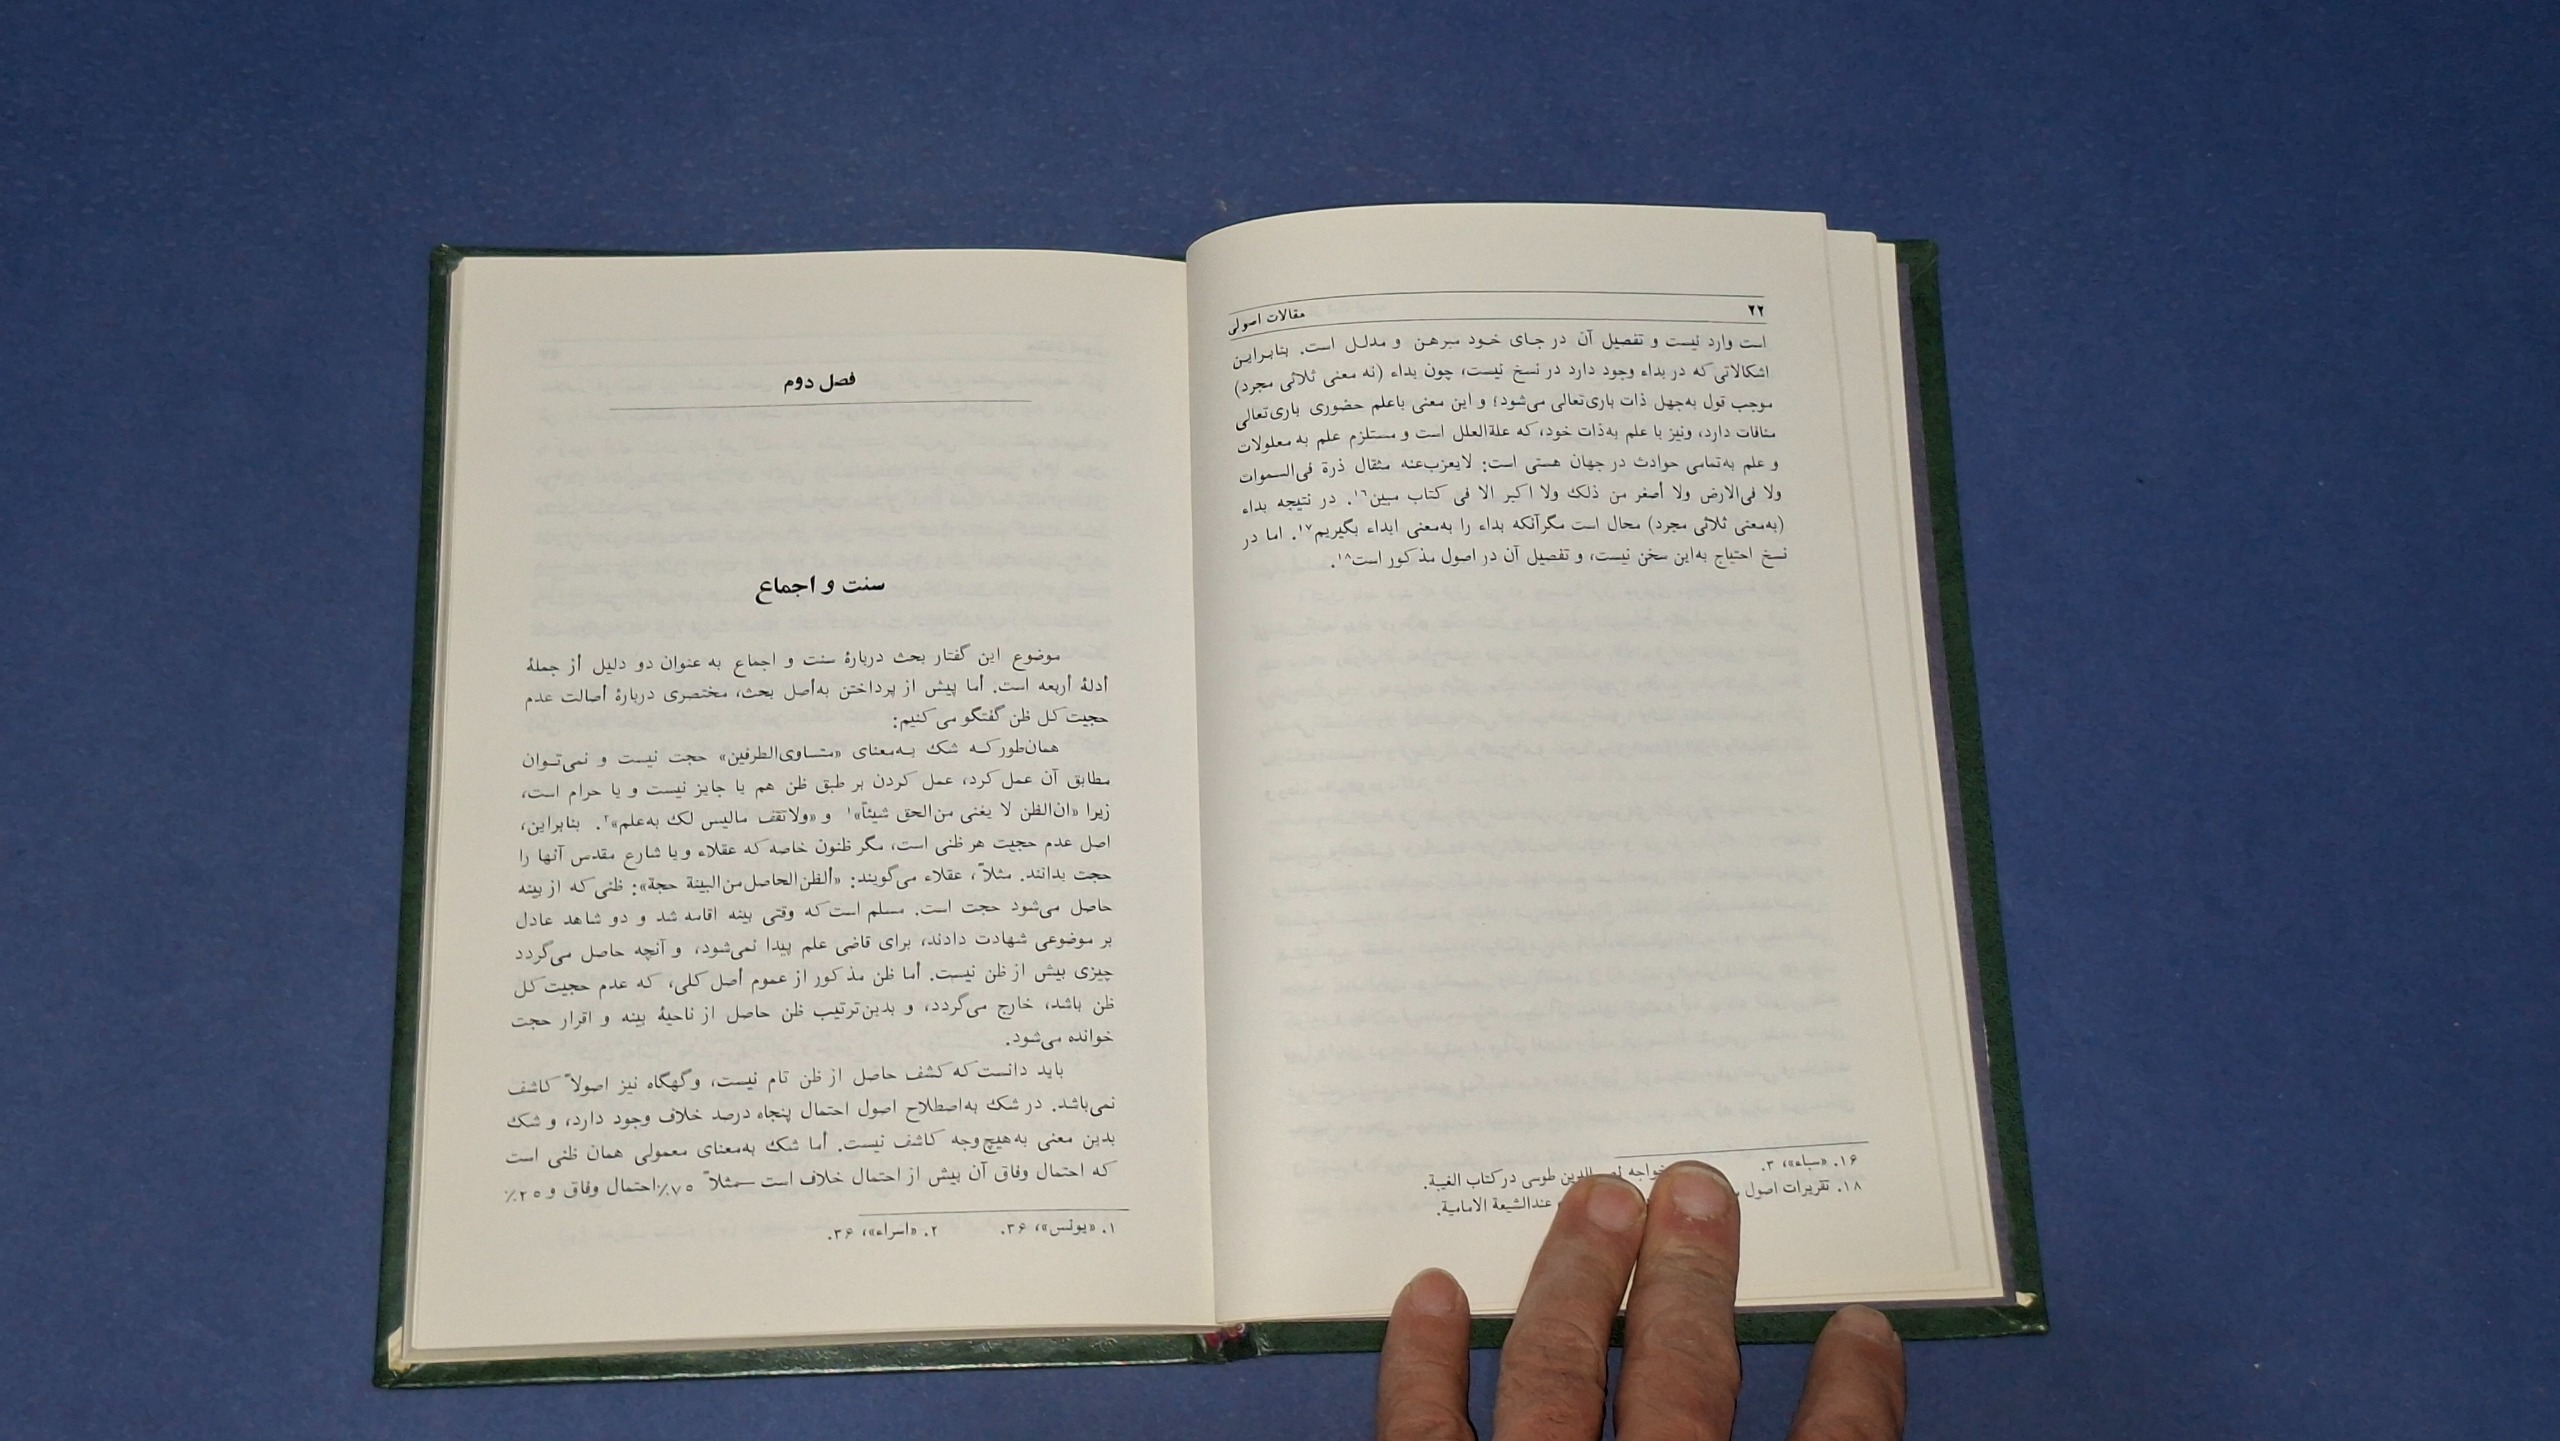 ۲۲
مقالات اصولی
است وارد نیست و تفصیل آن در جای خود مبرهن و مدلل است. بنابراین
اشکالاتی که در بداء وجود دارد در نسخ نیست، چون بداء (نه معنی ثلاثی مجرد)
موجب قول به‌جهل ذات باری‌تعالی می‌شود؛ و این معنی باعلم حضوری باری‌تعالی
منافات دارد، ونیز با علم به‌ذات خود، که علةالعلل است و مستلزم علم به معلولات
و علم به‌تمامی حوادث در جهان هستی است: لایعزب‌عنه مثقال ذرة فی‌السموات
ولا فی‌الارض ولا أصغر من ذلک ولا اکبر الا فی کتاب مبین۱۶. در نتیجه بداء
(به‌معنی ثلاثی مجرد) محال است مگرآنکه بداء را به‌معنی ابداء بگیریم۱۷. اما در
نسخ احتیاج به‌این سخن نیست، و تفصیل آن در اصول مذکور است۱۸.
۱۶. «سباء»، ۳. خواجه الدین طوسی در کتاب الغیبة.
۱۸. تقریرات اصول عندالشیعة الامامیة.
فصل دوم
سنت و اجماع
موضوع این گفتار بحث دربارهٔ سنت و اجماع به عنوان دو دلیل از جملهٔ
أدلهٔ أربعه است. أما پیش از پرداختن به‌أصل بحث، مختصری دربارهٔ أصالت عدم
حجیت کل ظن گفتگو می‌کنیم:
همان‌طور که شک به‌معنای «متساوی‌الطرفین» حجت نیست و نمی‌توان
مطابق آن عمل کرد، عمل کردن بر طبق ظن هم یا جایز نیست و یا حرام است،
زیرا «ان‌الظن لا یغنی من‌الحق شیئاً»۱ و «ولاتقف مالیس لک به‌علم»۲. بنابراین،
اصل عدم حجیت هر ظنی است، مگر ظنون خاصه که عقلاء ویا شارع مقدس آنها را
حجت بدانند. مثلاً، عقلاء می‌گویند: «ألظن‌الحاصل‌من‌البینة حجة»: ظنی که از بینه
حاصل می‌شود حجت است. مسلم است که وقتی بینه اقامه شد و دو شاهد عادل
بر موضوعی شهادت دادند، برای قاضی علم پیدا نمی‌شود، و آنچه حاصل می‌گردد
چیزی بیش از ظن نیست. أما ظن مذکور از عموم أصل کلی، که عدم حجیت کل
ظن باشد، خارج می‌گردد، و بدین‌ترتیب ظن حاصل از ناحیهٔ بینه و اقرار حجت
خوانده می‌شود.
باید دانست که کشف حاصل از ظن تام نیست، وگهگاه نیز اصولاً کاشف
نمی‌باشد. در شک به‌اصطلاح اصول احتمال پنجاه درصد خلاف وجود دارد، و شک
بدین معنی به‌هیچ‌وجه کاشف نیست. أما شک به‌معنای معمولی همان ظنی است
که احتمال وفاق آن بیش از احتمال خلاف است ــمثلاً ۷۵٪ احتمال وفاق و ۲۵٪
۱. «یونس»، ۳۶. ۲. «اسراء»، ۳۶.